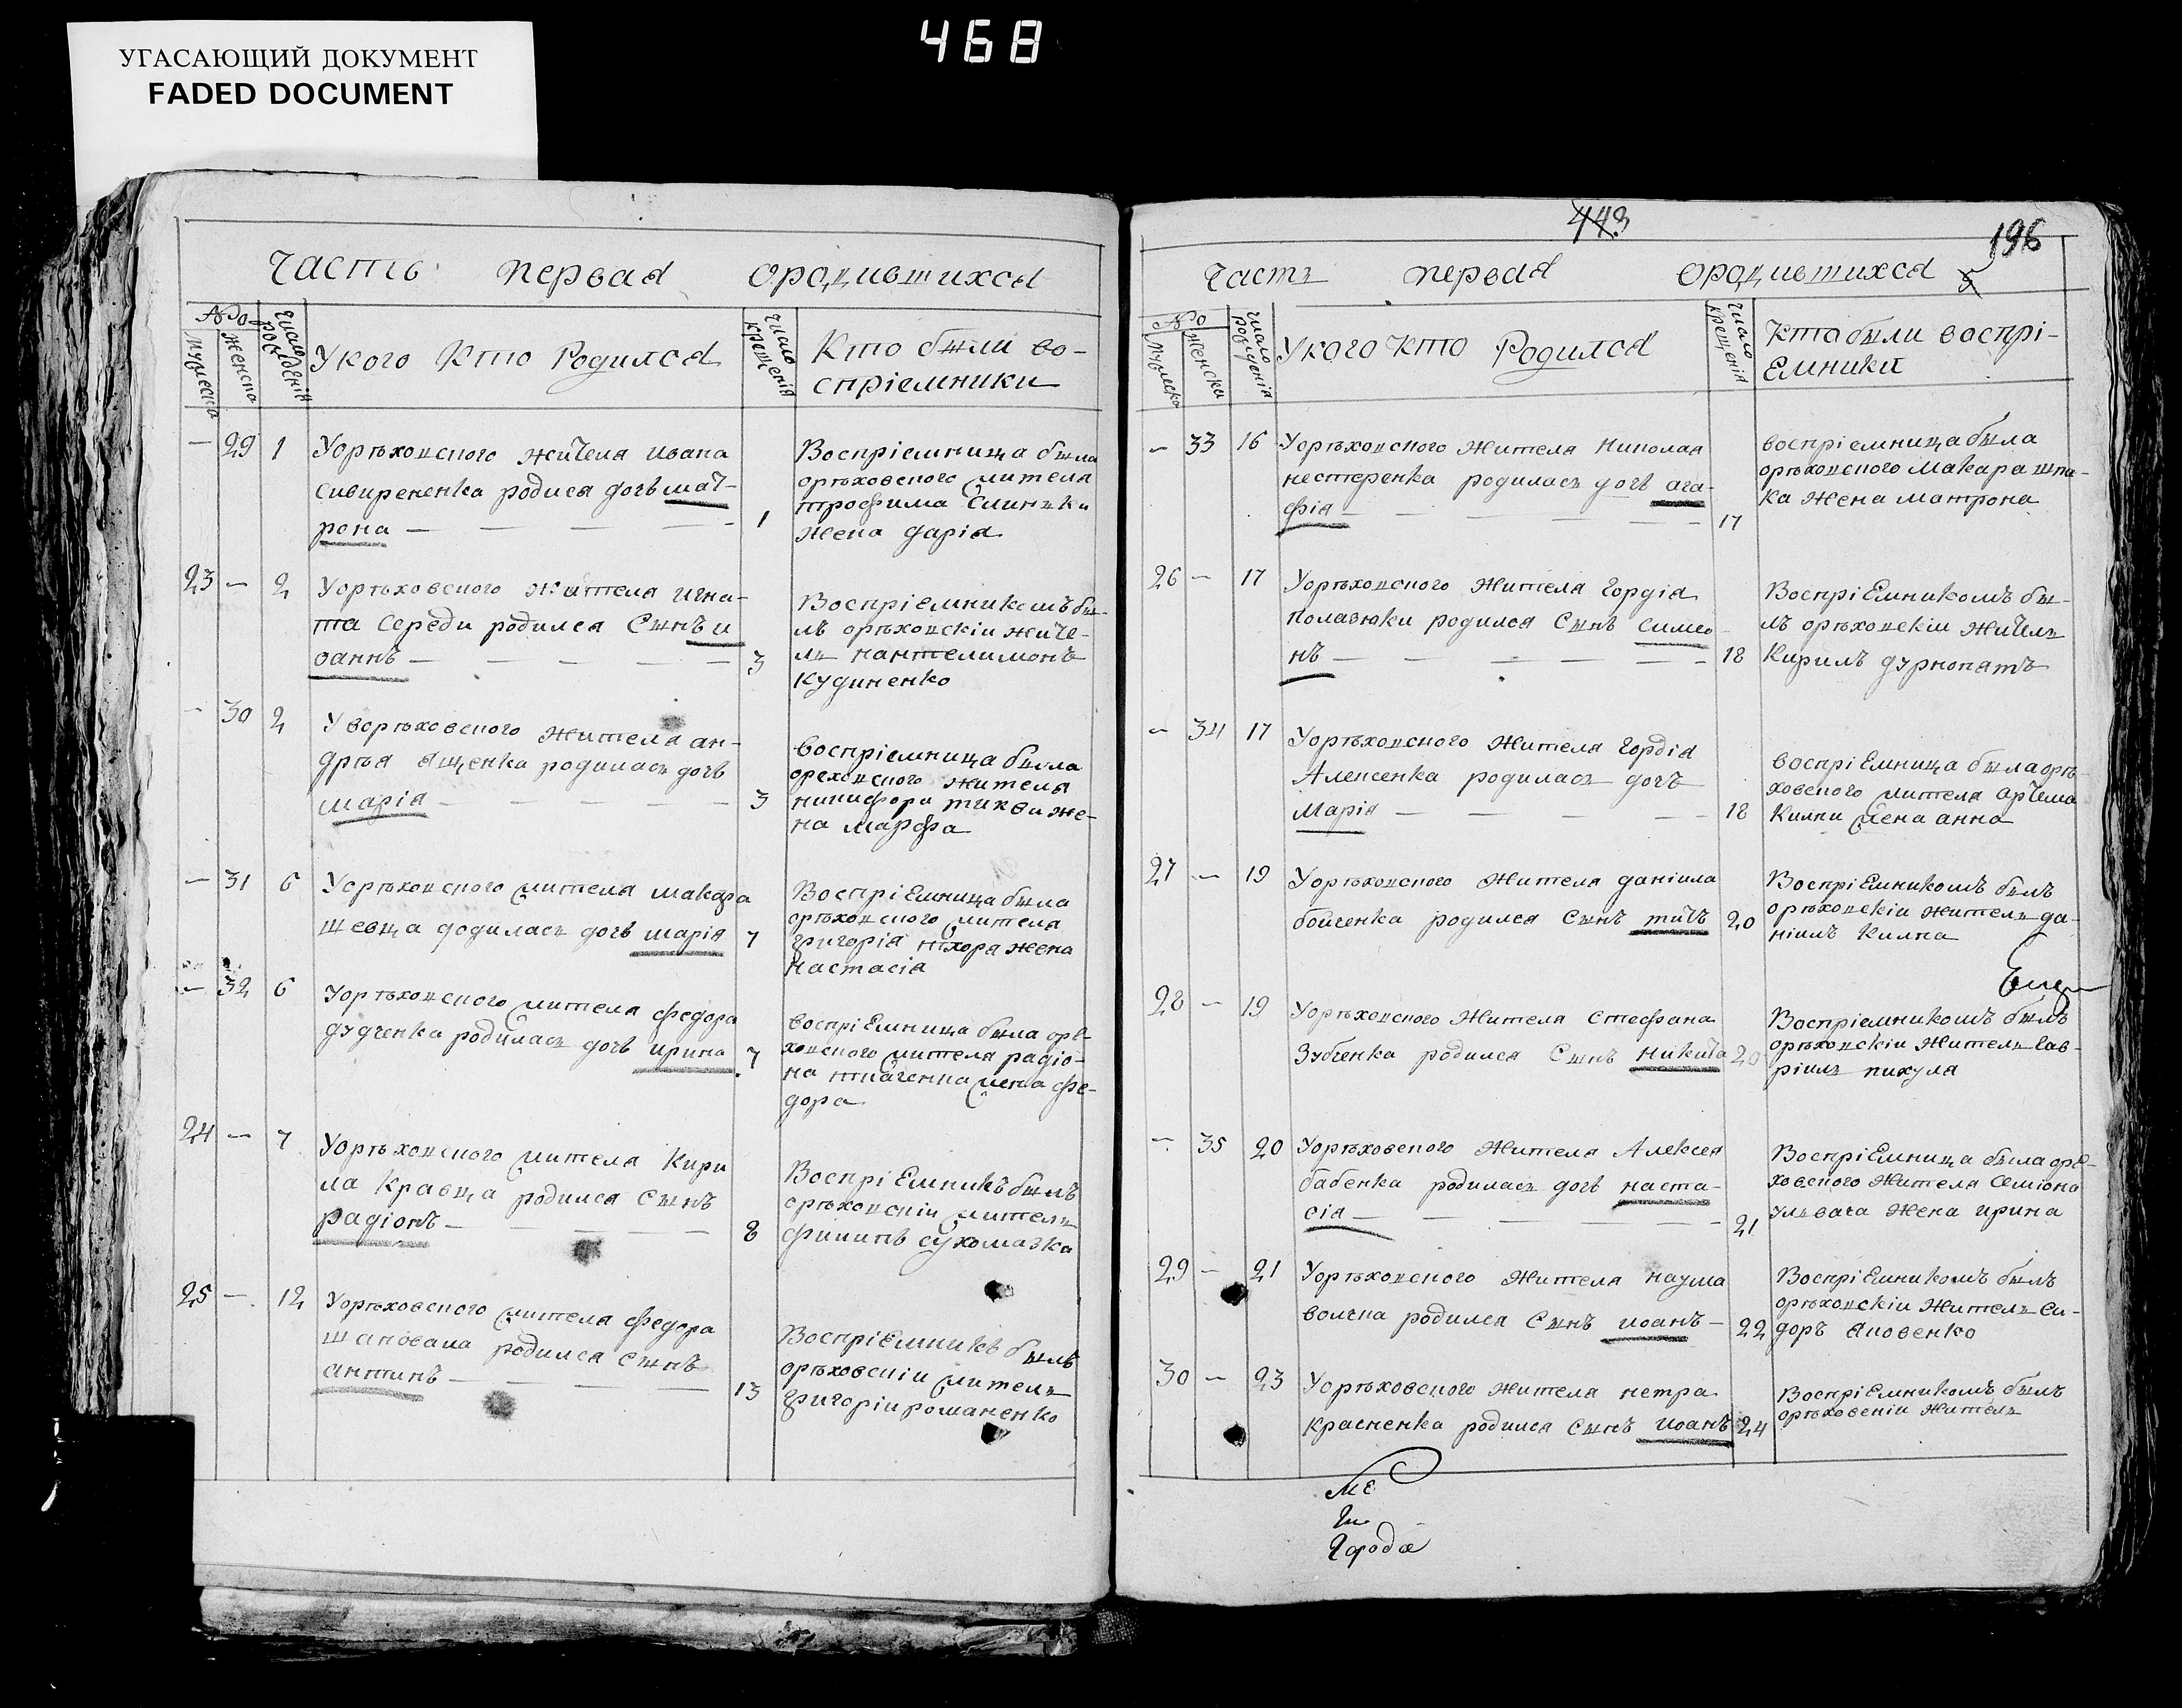 468
УГАСАЮЩИЙ ДОКУМЕНТ
FADED DOCUMENT
часть первая ородившихся
№
мужеска
женска
число рождения
Укого Кто Родился
число крещенія
Кто были во-
спріемники
— 29 1
Уорѣховского жителя ивана
сивирененка родися дочь мат-
рона — 1
Воспріемница была
орѣховского жителя
трофима
жена дарія
23 — 2
Уорѣховского жителя игна-
та середи родился Сынъ и
оаннъ — 3
Воспріемникомъ бы-
лъ орѣховскіи жите-
ль пантелимонъ
кудиненко
— 30 2
У ворѣховского жителя ан-
дрѣя ященка родилась дочь
марія — 3
воспріемница была
ореховского жителя
никифора тикви же-
на марфа
— 31 6
Уорѣховского жителя макара
шевца додилась дочь марія 7
ВоспріЕмница была
орѣховского жителя
григорія тхора жена
настасія
— 32 6
Уорѣховского жителя федора
дудченка родилась дочь ирина 7
воспріЕмница была орѣ-
ховского жителя радіо-
на ткаченка жена фе-
дора
24 — 7
Уорѣховского жителя Кири
ла Кравца родился Сынъ
радіонъ — 8
ВоспріЕмникъ былъ
орѣховскіи житель
филипъ сухомазка
25 — 12
Уорѣховского жителя федора
шаповала родился сынъ
антипъ — 13
ВоспріЕмникъ былъ
орѣховскіи житель
григоріи романенко
443
196
5
часть первая ородившихся
№
мужеска
женска
число рожденія
Укого кто Родился
число крещенія
кто были воспрі-
Емники
— 33 16
Уорѣховского жителя николая
нестеренка родилась дочь ага-
фія — 17
воспріемница была
орѣховского макара шпа-
ка жена матрона
26 — 17
Уорѣховского жителя гордія
полазюки родился Сынъ симео-
нъ — 18
ВоспріЕмникомъ бы-
лъ орѣховскіи житель
Кирилъ дурнопатъ
— 34 17
Уорѣховского жителя гордія
Алексенка родилась дочь
Марія — 18
воспріЕмница была орѣ-
ховского жителя артема
Килпи жена анна
27 — 19
Уорѣховского жителя даніила
бойченка родился Сынъ титъ 20
ВоспріЕмникомъ былъ
орѣховскіи житель да-
ніилъ Килпа
28 — 19
Уорѣховского жителя стефана
Зубченка родился Сынъ никита 20
Воспріемникомъ былъ
орѣховскіи житель гав-
ріилъ пихуля
— 35 20
Уорѣховского жителя Алексея
бабенка родилась дочь наста-
сія — 21
ВоспріЕмница была орѣ-
ховского жителя семіона
жена ирина
29 — 21
Уорѣховского жителя наума
волчка родился Сынъ иоанъ — 22
ВоспріЕмникомъ былъ
орѣховскіи житель си-
доръ яковенко
30 — 23
Уорѣховского жителя петра
красненка родился сынъ иоанъ 24
ВоспріЕмникомъ былъ
орѣховскіи житель